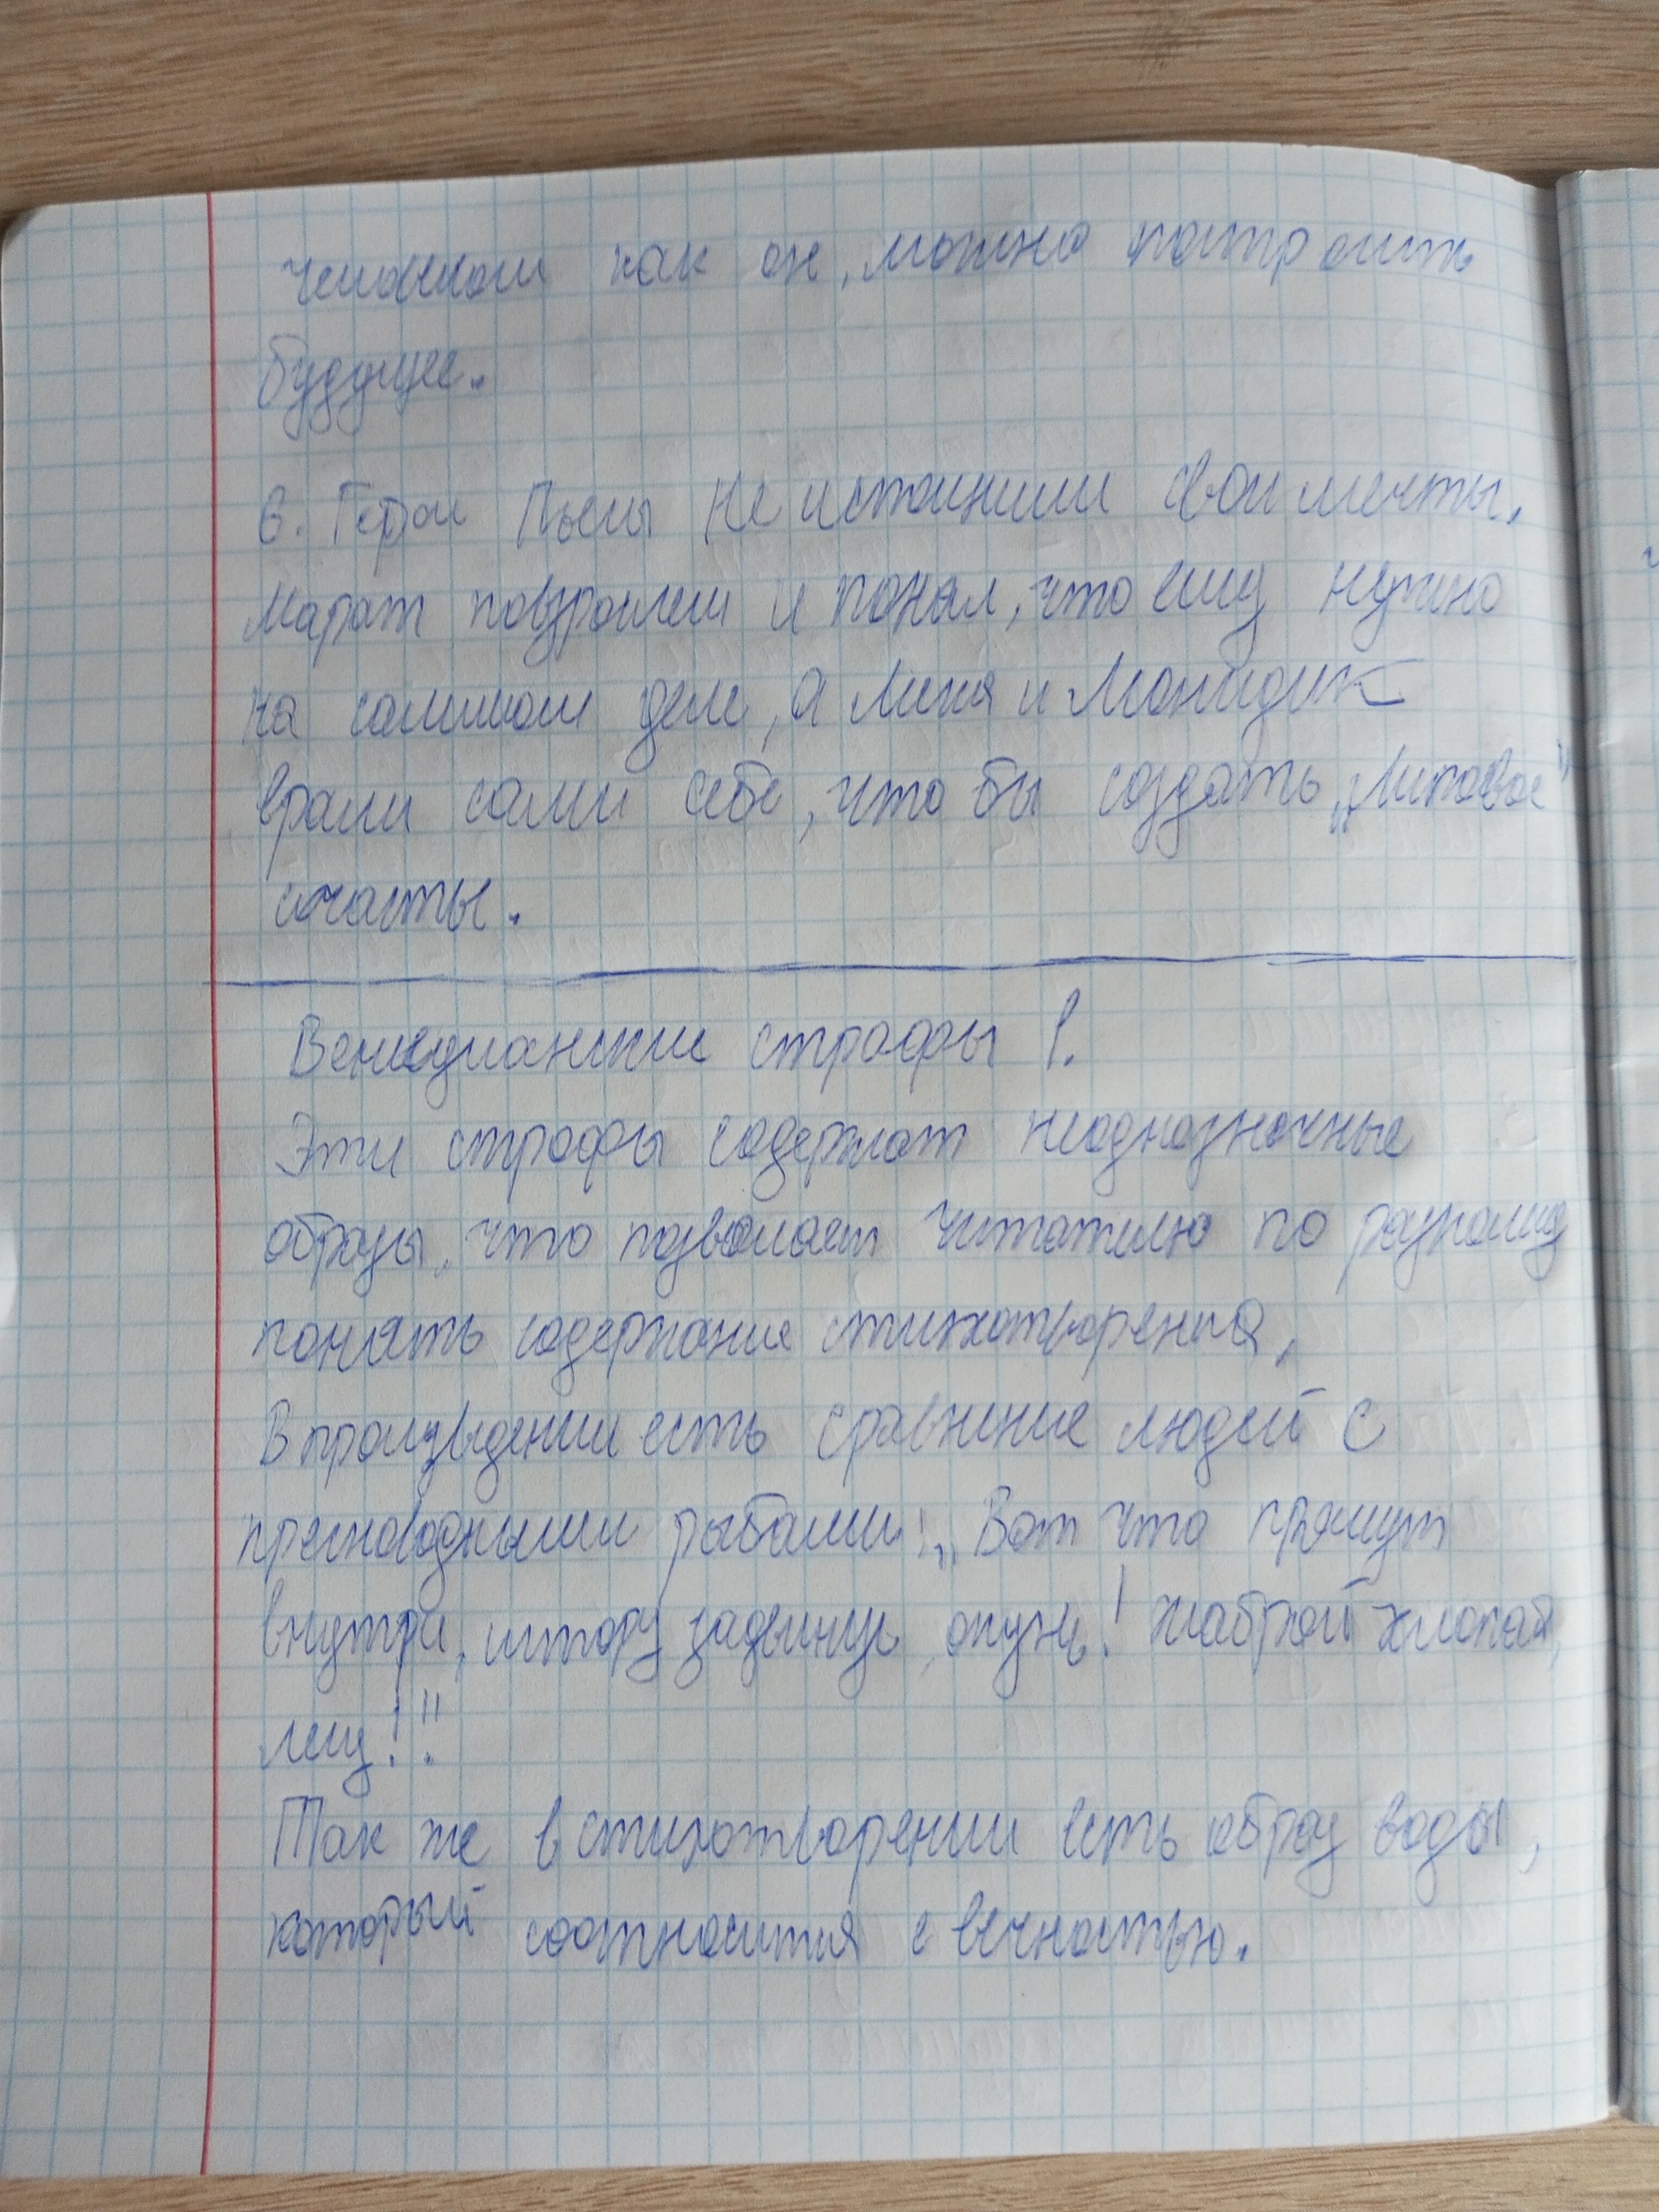 человеком как он, можно построить
будущее.
6. Герои Пьесы не исполнили свои мечты.
Марат повзрослел и понял, что ему нужно
на самом деле, а Лика и Леонидик
врали сами себе, что бы создать „липовое"
счастье.
Венецианские строфы 1.
Эти строфы содержат неоднозначные
образы, что позволяет читателю по разному
понять содержание стихотворения.
В произведении есть сравнение людей с
пресноводными рыбами: „Вот что прячут
внутри, штору задвинув, окунь! жаброй хлопай,
лещ!"
Так же в стихотворении есть образ воды,
который соотносится с вечностью.